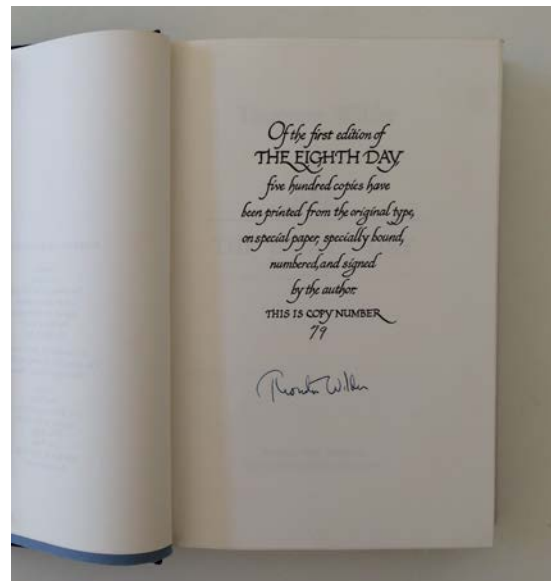 Of the first edition of
THE EIGHTH DAY,
five hundred copies have
been printed from the original type,
on special paper, specially bound,
numbered, and signed
by the author.
THIS IS COPY NUMBER
79
Thornton Wilder